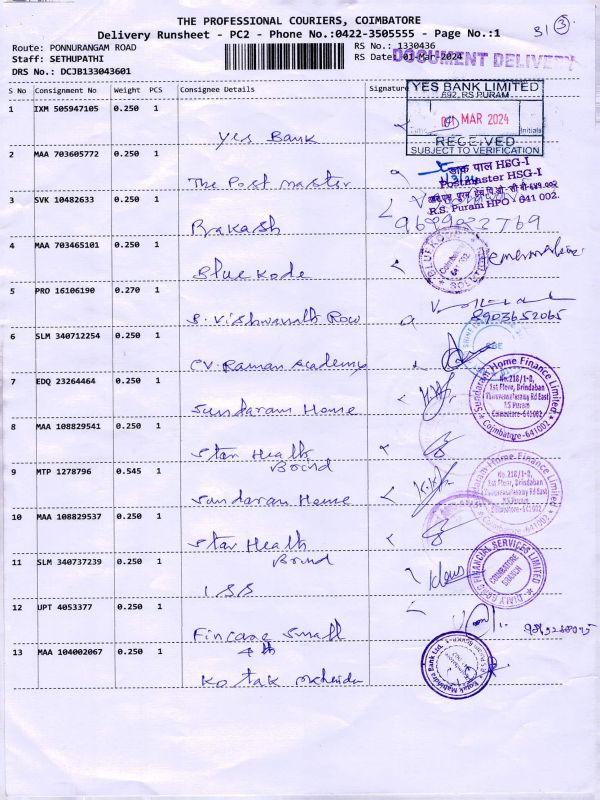 THE PROFESSIONAL COURIERS, COIMBATORE
Delivery Runsheet - PC2 - Phone No.:0422-3505555 - Page No.:1
31 3
Route: PONNURANGAM ROAD
RS No.: 1330436
Staff: SETHUPATHI
RS Date: 01-Mar-2024
DOCUMENT DELIVERY
DRS No.: DCJB133043601
S No Consignment No Weight PCS Consignee Details Signature
YES BANK LIMITED
692, RS PURAM
01 MAR 2024
Initials
RECEIVED
SUBJECT TO VERIFICATION
1 IXM 505947105 0.250 1
Yes Bank
2 MAA 703605772 0.250 1
The Post master
डाक पाल HSG-I
Postmaster HSG-I
R.S. Puram HPO - 641 002.
3 SVK 10482633 0.250 1
Prakash
9689022769
4 MAA 703465101 0.250 1
Blue Kode
5 PRO 16106190 0.270 1
S. Vishwanath Row
8903652065
6 SLM 340712254 0.250 1
CV. Raman Academy
7 EDQ 23264464 0.250 1
Sundaram Home
Sundaram Home Finance Limited
No.218/1-8,
1st Floor, Brindaban
Thiruvenkatasamy Rd East
R.S Puram
Coimbatore-641002
Coimbatore-641002
8 MAA 108829541 0.250 1
Star Health
Brind
9 MTP 1278796 0.545 1
Sundaram Home
Home Finance Limited
No.218/1-8,
1st Floor, Brindaban
Thiruvenkatasamy Rd East
R.S Puram
Coimbatore-641002
10 MAA 108829537 0.250 1
Star Health
Brind
11 SLM 340737239 0.250 1
FINANCIAL SERVICES LIMITED
COIMBATORE
BRANCH
12 UPT 4053377 0.250 1
Fincare Small
13 MAA 104002067 0.250 1
Kotak Mahindra
Kotak Mahindra Bank Ltd.